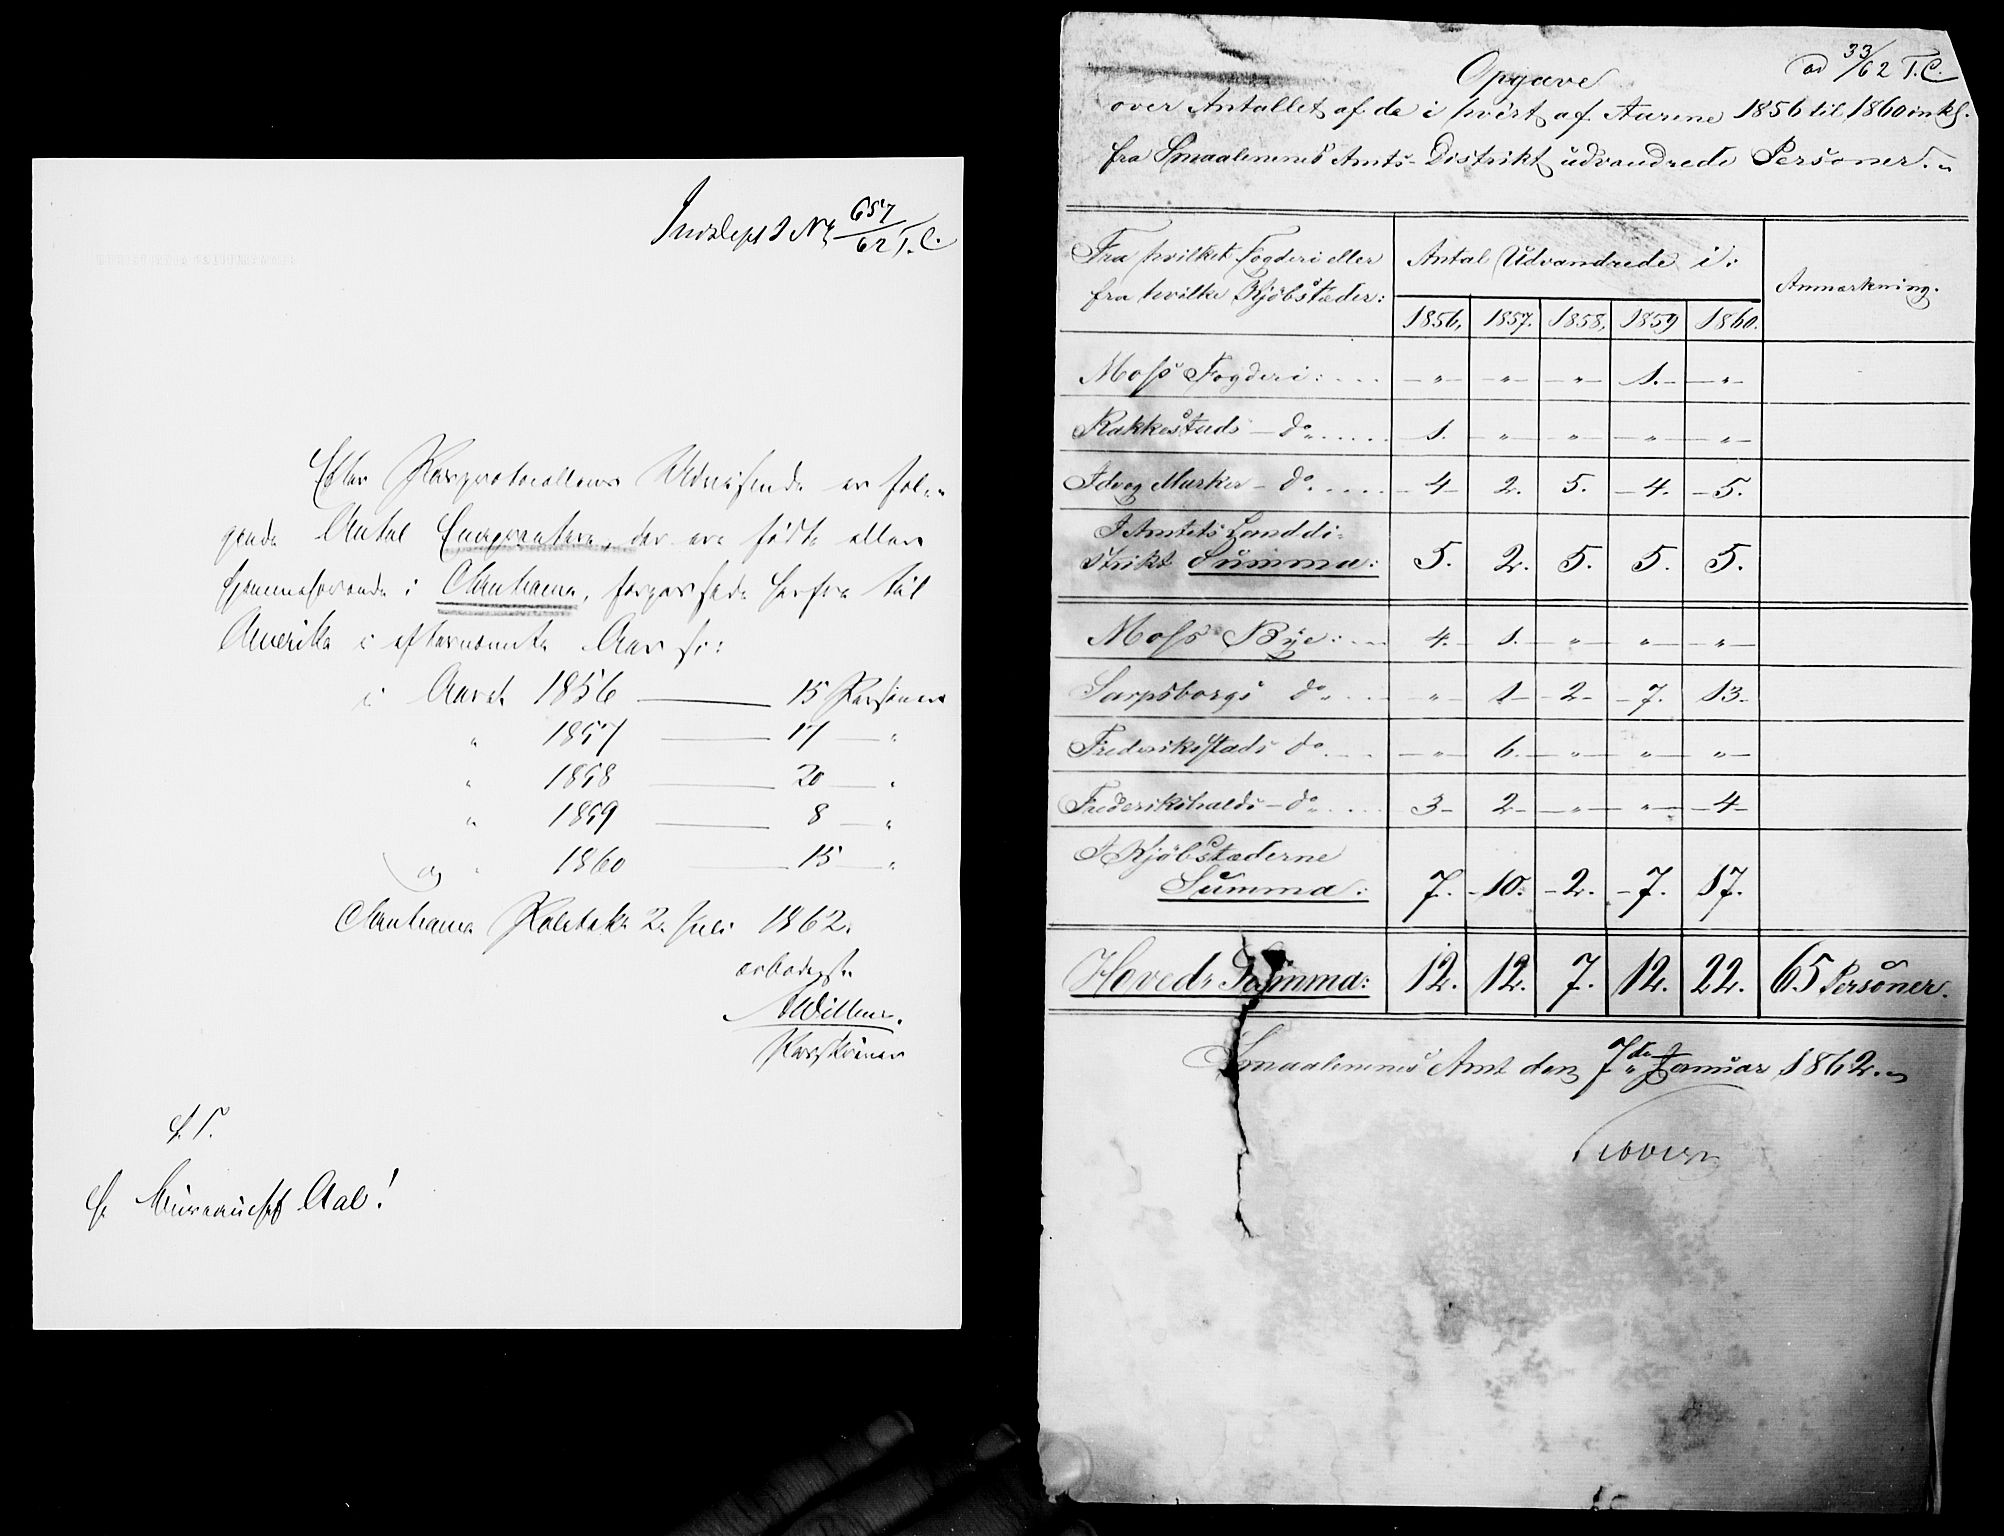 657
62 T. C.
Efter Passprotocollens Udvisende er føl-
gende Antal Emigrantere, der ere fødte eller
hjemmehørende i Christiania, herfra til
Amerika i efternævnte Aar:
i Aaret 1856 — 15 Personer
" 1857 — 17 — "
" 1858 — 20 — "
" 1859 — 8 — "
og " 1860 — 15 — "
Christiania Politik. 2. Juli 1862.
ærbødigst
Passkriver
S. T.
Hr. Bureauchef Aal!
ad 33/62 T. C.
Opgave
over Antallet af de i hvert af Aarene 1856 til 1860 inkl.
fra Smaalenenes Amts-Distrikt udvandrede Personer.
Fra hvilket Fogderi eller Antal Udvandrede i: Anmærkning.
fra hvilke Kjøbstæder:
1856, 1857. 1858, 1859 1860.
Moss Fogderi: .... — " — — " — — " — 1. — — " —
Rakkestads — do. .... 1. — " — — " — — " — — " —
Id og Marker — do. .... 4 — 2. 5. — 4. — 5.
I Amtets Landdi-
strikt Summa: 5. 2. 5. 5. 5.
Moss Bye: ... 4. 1. — " — — " — — " —
Sarpsborgs do. ... — " — 1 — 2 — 7. 13 —
Frederiksstads do. ... — " — 6. — " — — " — — " —
Frederikshalds — do. .... 3 — 2 — — " — — " — 4 —
I Kjøbstæderne
Summa: 7. — 10. — 2. — 7. 17.
Hoved-Summa: 12. 12. 7. 12. 22. 65 Personer.
Smaalenenes Amt den 7de Januar 1862.